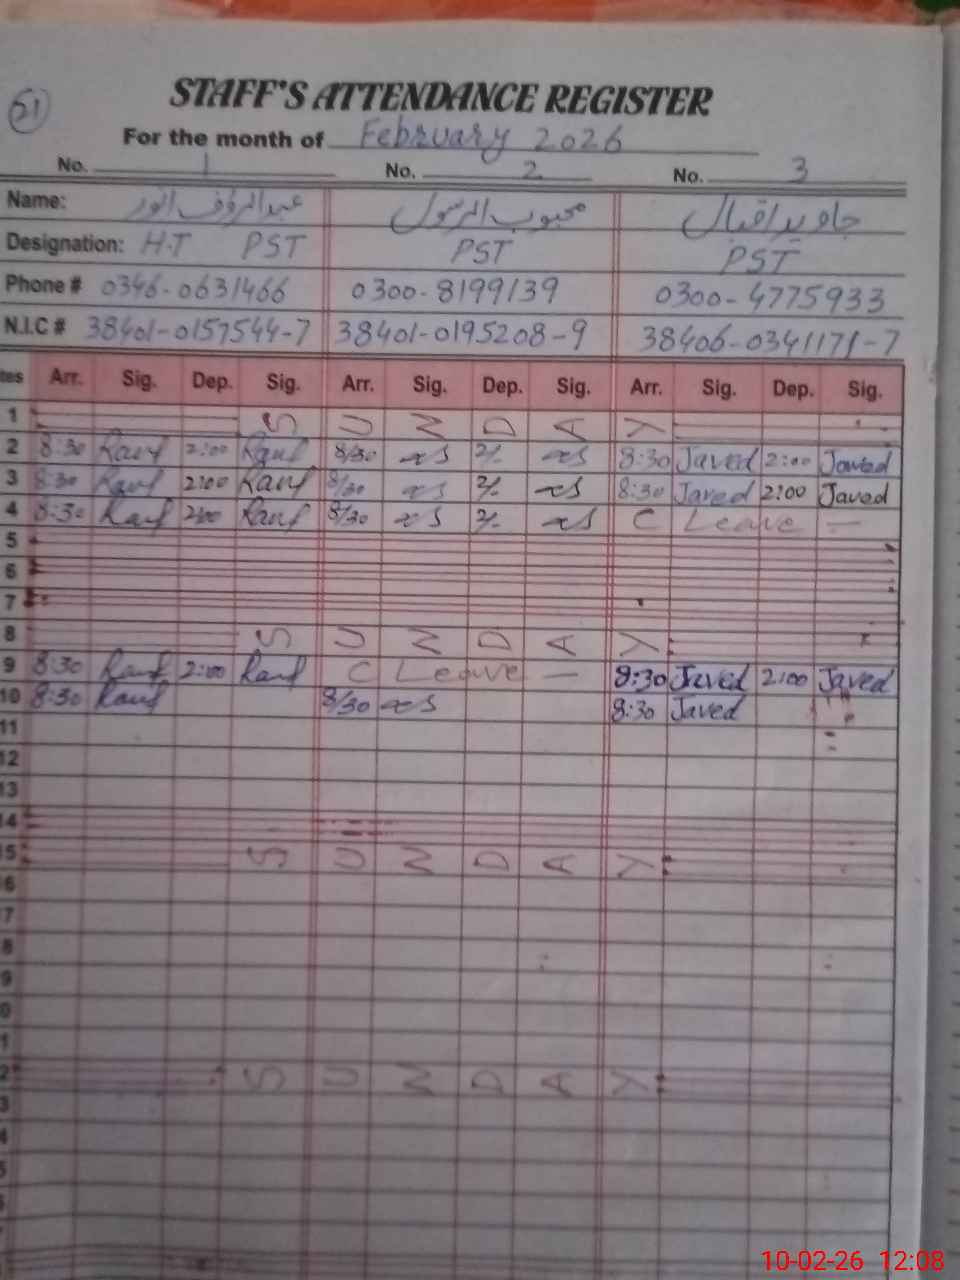 51
STAFF'S ATTENDANCE REGISTER
For the month of February 2026
No. 1 No. 2 No. 3
Name: عبدالرؤف انور محبوب الرسول جاوید اقبال
Designation: H.T PST PST PST
Phone # 0346-0631466 0300-8199139 0300-4775933
N.I.C # 38401-0157544-7 38401-0195208-9 38406-0341171-7
tes Arr. Sig. Dep. Sig. Arr. Sig. Dep. Sig. Arr. Sig. Dep. Sig.
1 S U N D A Y
2 8:30 Rauf 2:00 Rauf 8/30 2/- 8:30 Javed 2:00 Javed
3 8:30 Rauf 2:00 Rauf 8/30 2/- 8:30 Javed 2:00 Javed
4 8:30 Rauf 2:00 Rauf 8/30 2/- C Leave —
5
6
7
8 S U N D A Y
9 8:30 Rauf 2:00 Rauf C Leave — 8:30 Javed 2:00 Javed
10 8:30 Rauf 8/30 8:30 Javed
11
12
13
14
5 S U N D A Y
6
7
8
9
0
1
2 S U N D A Y
3
4
5
10-02-26 12:08